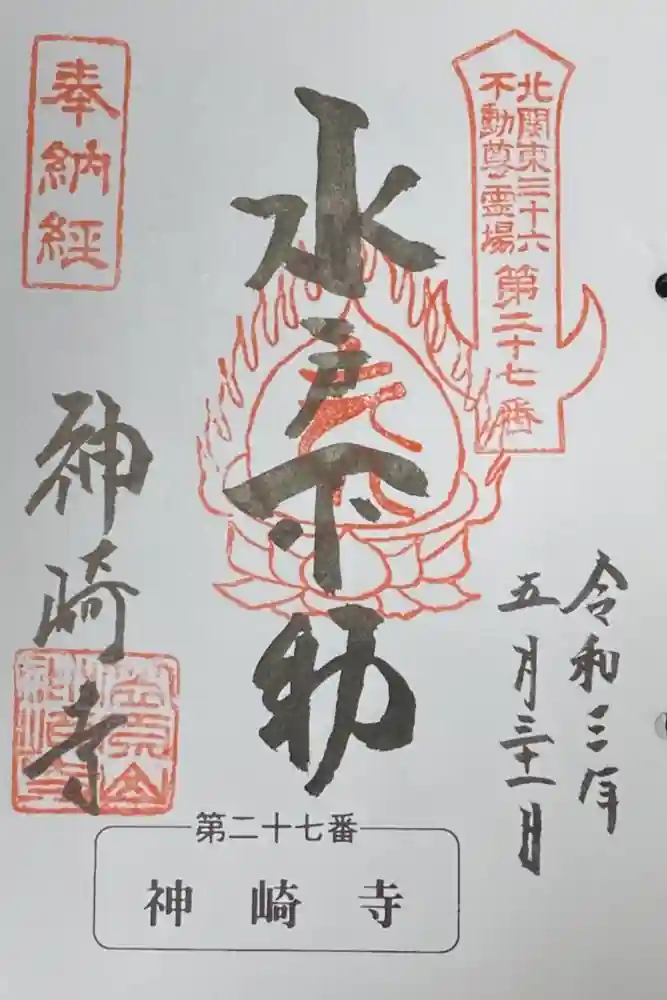 北関東三十六
不動尊霊場
第二十七番
令和三年
五月三十一日
水戸不動
奉納経
神崎寺
第二十七番
神崎寺